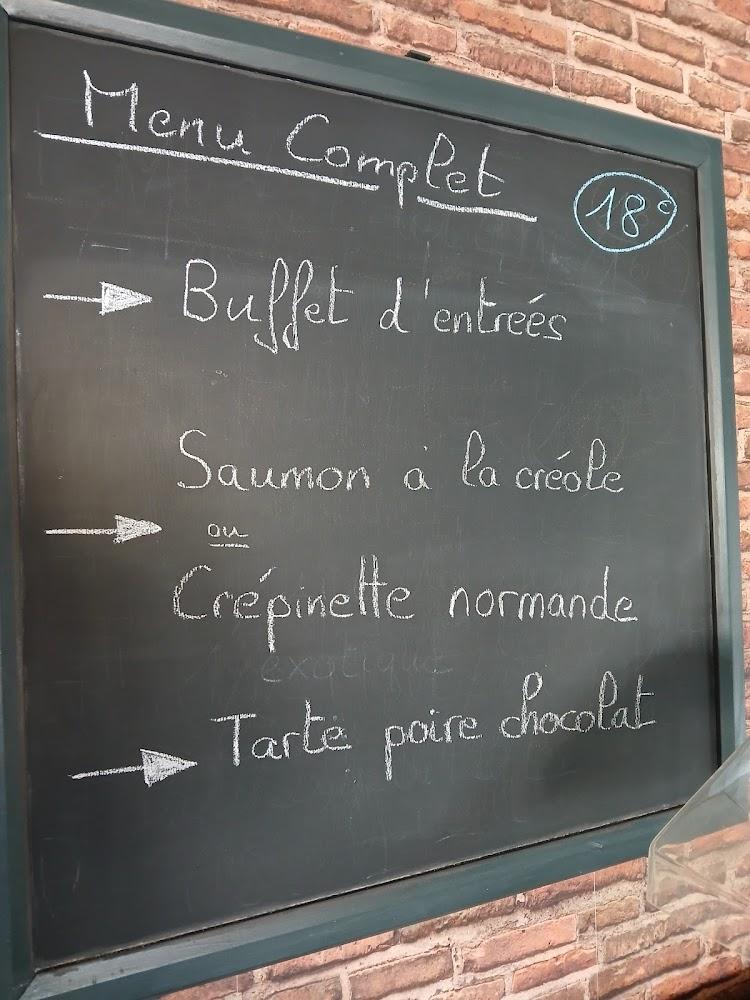 Menu Complet
18€
Buffet d'entreés
Saumon à la créole
ou
Crépinette normande
exotique
Tarte poire chocolat